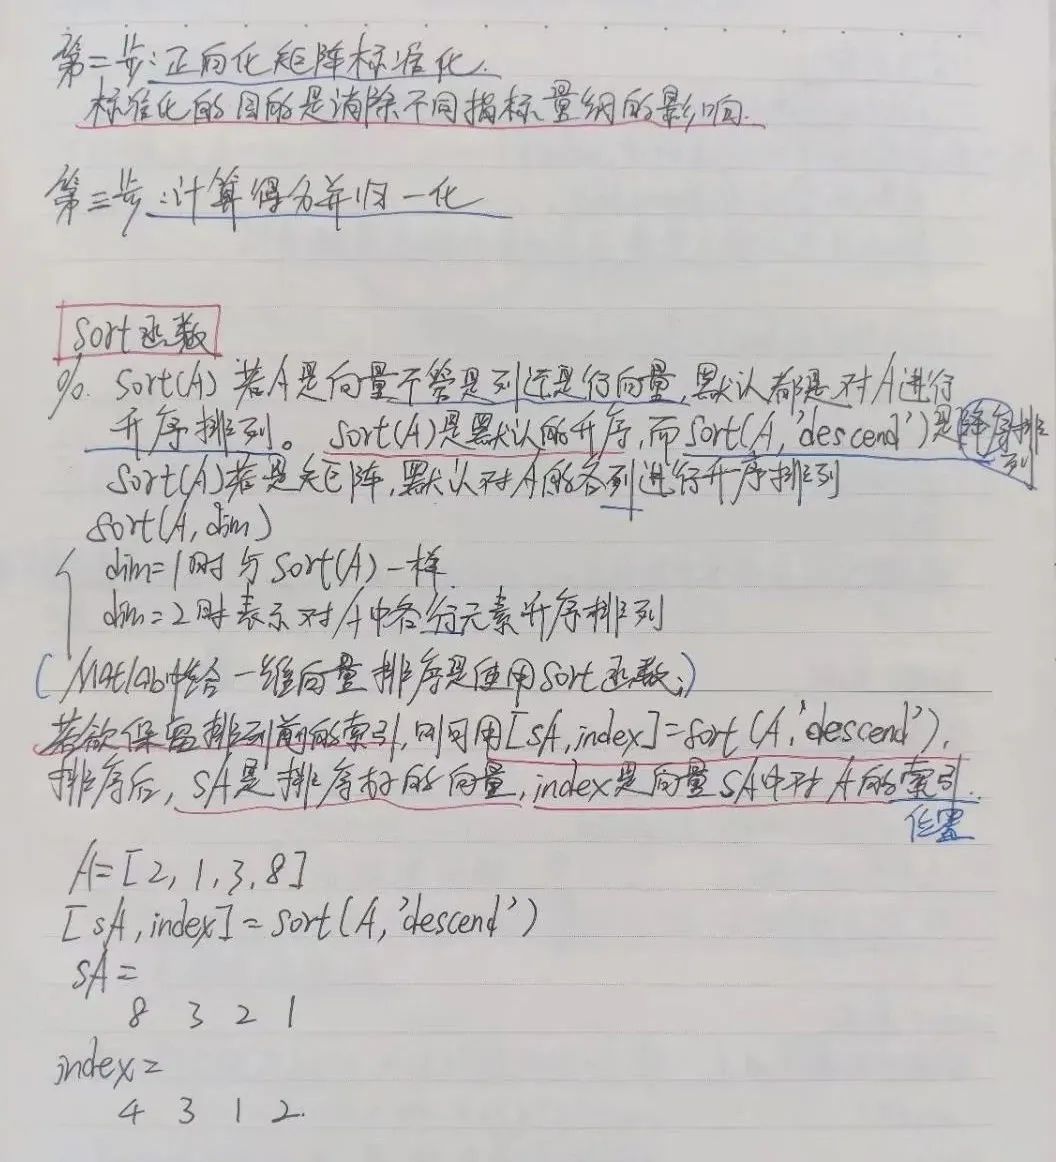 第二步:正向化矩阵标准化.
标准化的目的是消除不同指标量纲的影响.
第三步:计算得分并归一化
sort函数
%. sort(A) 若A是向量不管是列还是行向量,默认都是对A进行
升序排列。sort(A)是默认的升序,而sort(A,'descend')是降序排列
sort(A)若是矩阵,默认对A的各列进行升序排列
sort(A,dim)
dim=1时与sort(A)一样
dim=2时表示对A中各行元素升序排列
(Matlab中给一维向量排序是使用sort函数;)
若欲保留排列前的索引,则可用[sA,index]=sort(A,'descend'),
排序后,sA是排序好的向量,index是向量sA中对A的索引.
位置
A=[2,1,3,8]
[sA,index]=sort(A,'descend')
sA=
8 3 2 1
index=
4 3 1 2.